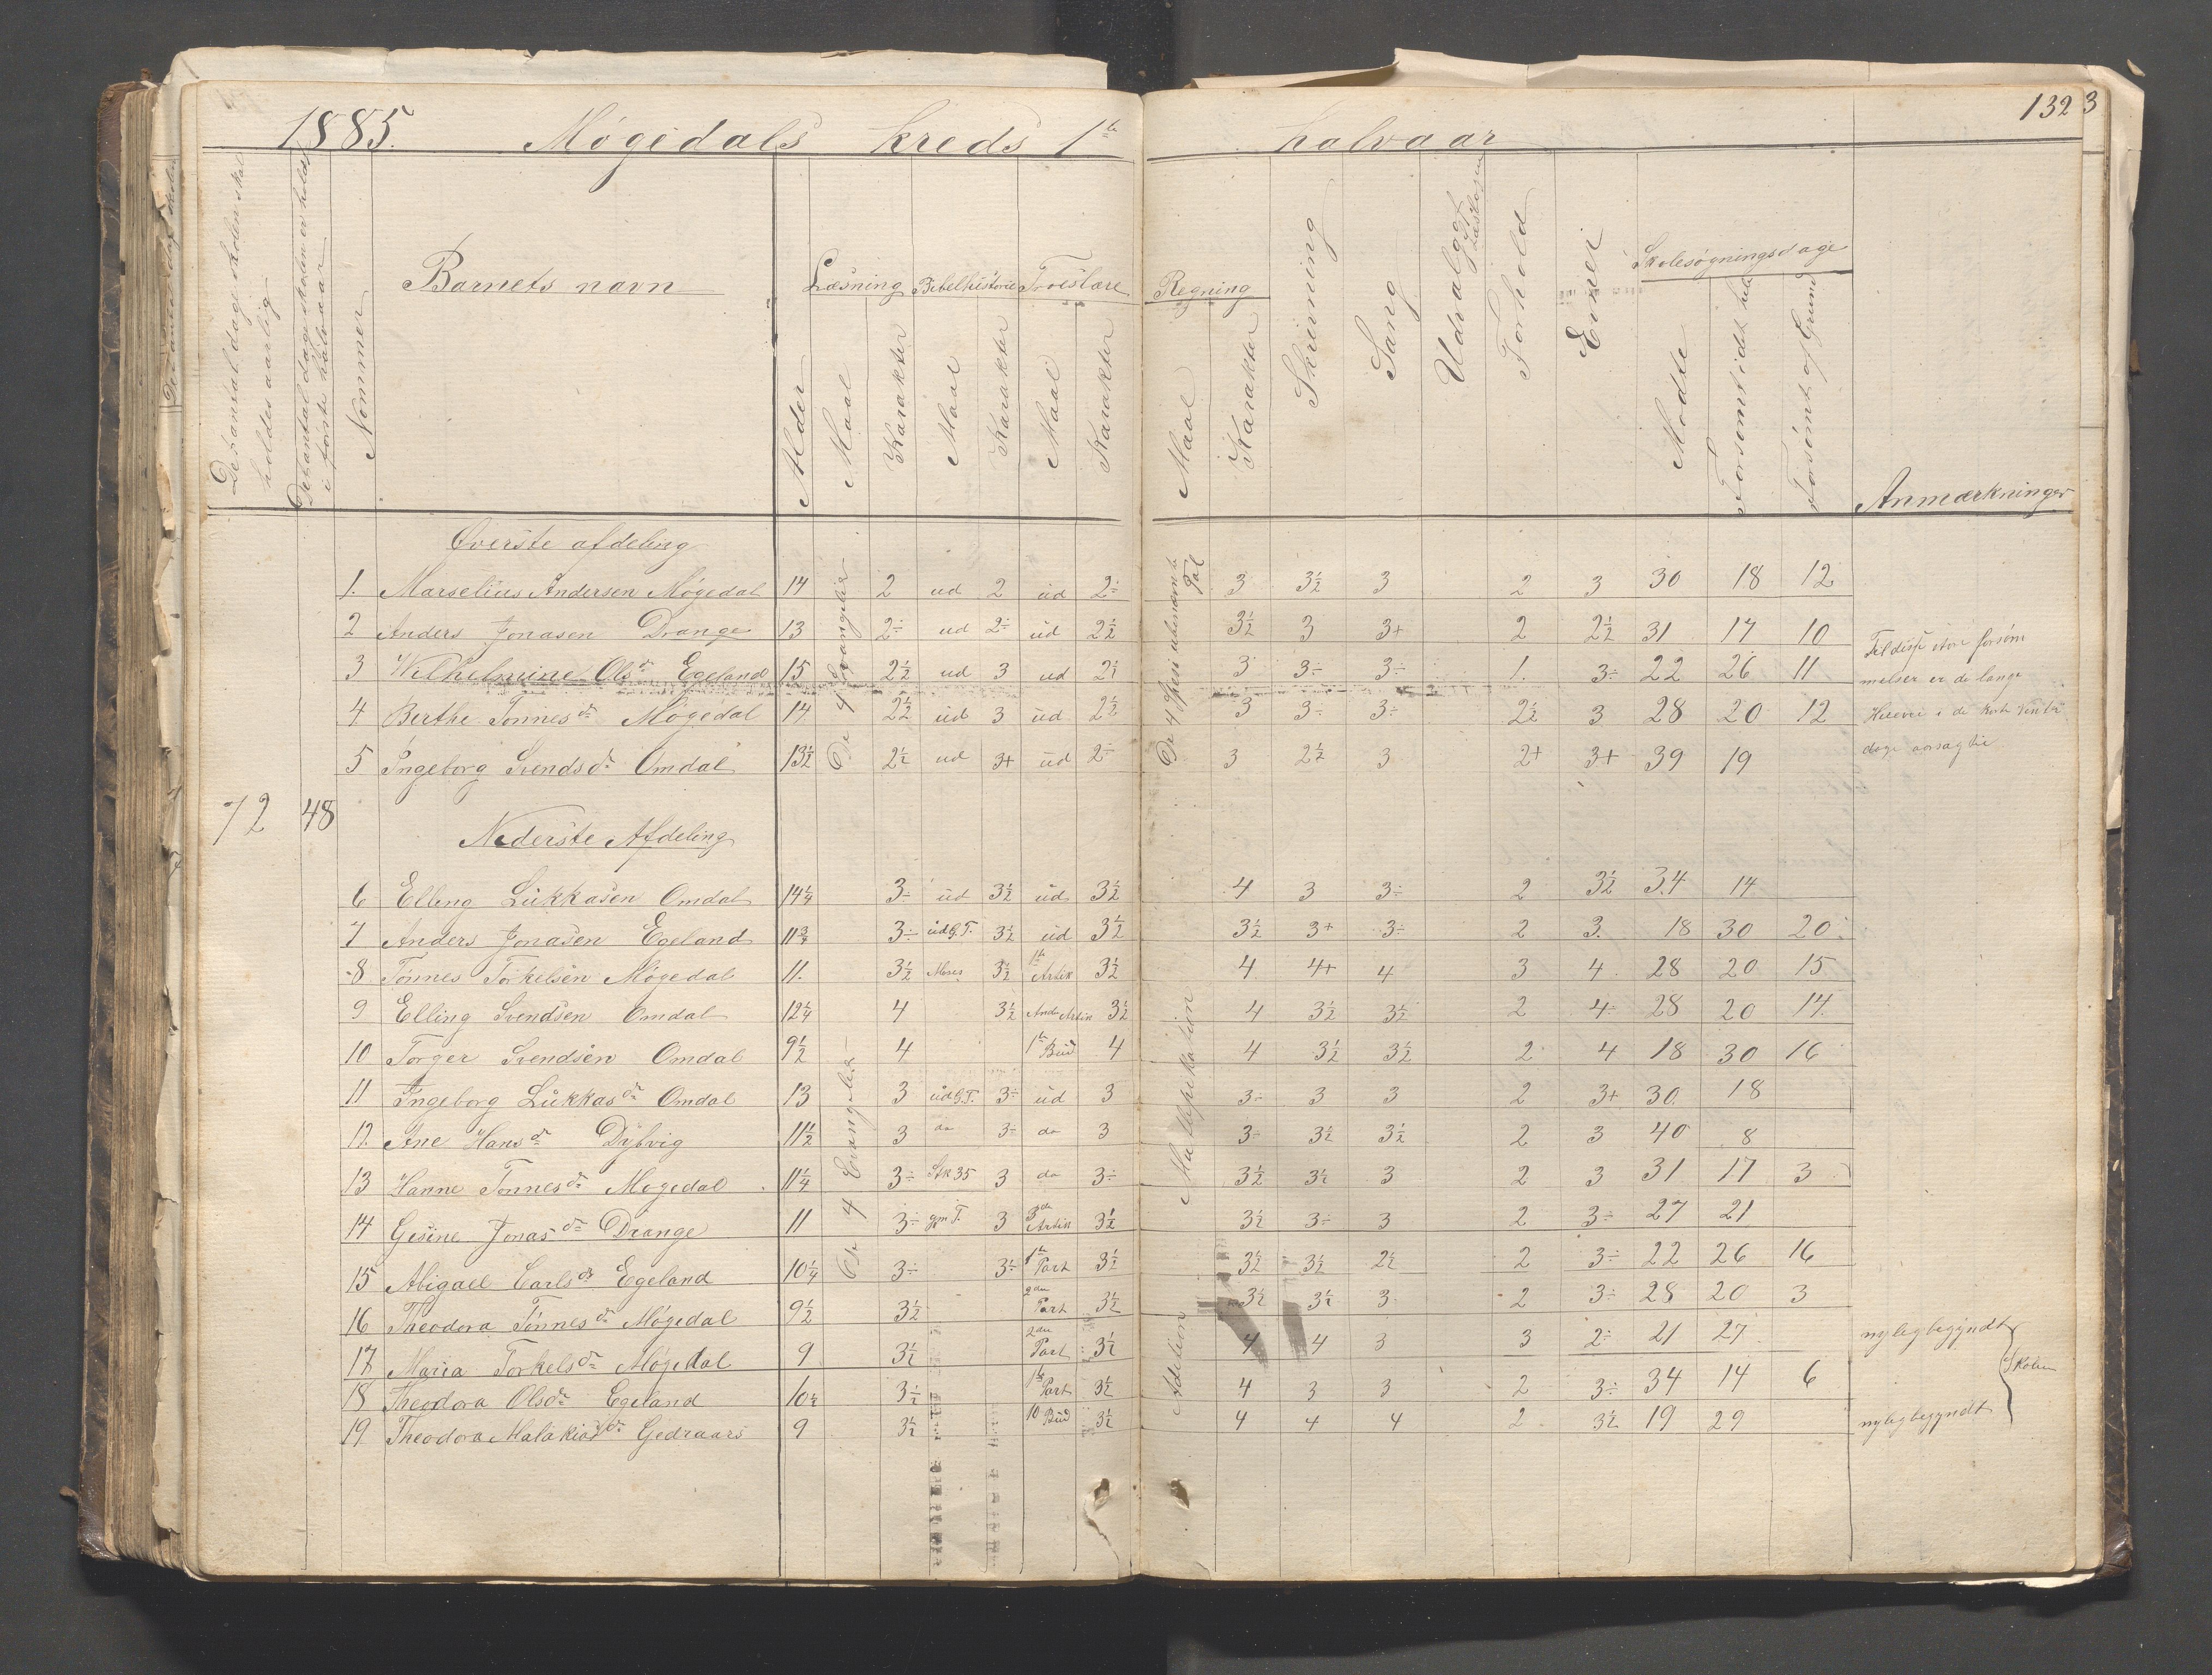 1885. Møgedals kreds 1ste halvaar 132 3
Det antal dage skolen skal holdes aarlig
Det antal dage skolen er holdt i første halvaar
Nommer
Barnets navn
Alder
Læsning Bibelhistorie Troeslære
Maal Karakter Maal Karakter Maal Karakter
Regning
Maal Karakter
Skrivning
Sang
Udvalgt af Læsebogen
Forhold
Evner
Skolesøgningsdage
Mødte
Forsømt i det hele
Forsømt af Grund
Anmærkninger
Øverste afdeling
De 4 Evangelier
De 4 Spesi ubenævnte Tal
1. Marselius Andersen Møgedal 14 2 ud 2 ud 2÷ 3 3½ 3 2 3 30 18 12
2 Anders Jonasen Drange 13 2÷ ud 2÷ ud 2½ 3½ 3 3+ 2 2½ 31 17 10
3 Wilhelmine Olsdr Egeland 15 2½ ud 3 ud 2½ 3 3÷ 3÷ 1. 3÷ 22 26 11
4 Berthe Tønnesdr Møgedal 14 2½ ud 3 ud 2½ 3 3÷ 3÷ 2½ 3 28 20 12
5 Ingeborg Svendsdr Omdal 13½ 2½ ud 3+ ud 2÷ 3 2½ 3 2+ 3+ 39 19
Til disse store forsøm
melser er de lange
Heieveie i de korte Vinter
dage aarsag til
72 48
Nederste Afdeling
De 4 Evangelier
Multiplikation
Adelion
6 Elling Lukkasen Omdal 14¼ 3÷ ud 3½ ud 3½ 4 3 3÷ 2 3½ 34 14
7 Anders Jonasen Egeland 11¾ 3÷ ud G.T. 3½ ud 3½ 3½ 3+ 3÷ 2 3. 18 30 20
8 Tønnes Torkelsen Møgedal 11. 3½ Moses 3½ 1ste Artik 3½ 4 4+ 4 3 4 28 20 15
9 Elling Svendsen Omdal 12¼ 4 3½ Anden Artik 3½ 4 3½ 3½ 2 4÷ 28 20 14
10 Torger Svendsen Omdal 9½ 4 1ste Bud 4 4 3½ 3½ 2 4 18 30 16
11 Ingeborg Lukkasdr Omdal 13 3 ud G.T. 3÷ ud 3 3÷ 3 3 2 3+ 30 18
12. Ane Hansdr Dybvig 11½ 3 do 3÷ do 3 3÷ 3½ 3½ 2 3 40 8
13 Hanne Tønnesdr Møgedal 11¼ 3÷ Stk 35 3 do 3÷ 3½ 3½ 3 2 3 31 17 3
14 Gesine Jonasdr Drange 11 3÷ gm T. 3 3de Artik 3½ 3½ 3÷ 3 2 3÷ 27 21
15 Abigael Carlsdr Egeland 10¼ 3÷ 3½ 1ste Part 3½ 3½ 3½ 2½ 2 3÷ 22 26 16
16 Theodora Tønnesdr Møgedal 9½ 3½ 2den Part 3½ 3½ 3½ 3 2 3÷ 28 20 3
17 Maria Torkelsdr Møgedal 9 3½ 2den Part 3½ 4 4 3 3 2÷ 21 27 nylig begyndt
18 Theodora Olsdr Egeland 10½ 3½ 1ste Part 3½ 4 3 3 2 3÷ 34 14 6 Skolen
19 Theodora Malakiasdr Gedraars 9 3½ 10 Bud 3½ 4 4 4 2 3½ 19 29 nylig begyndt